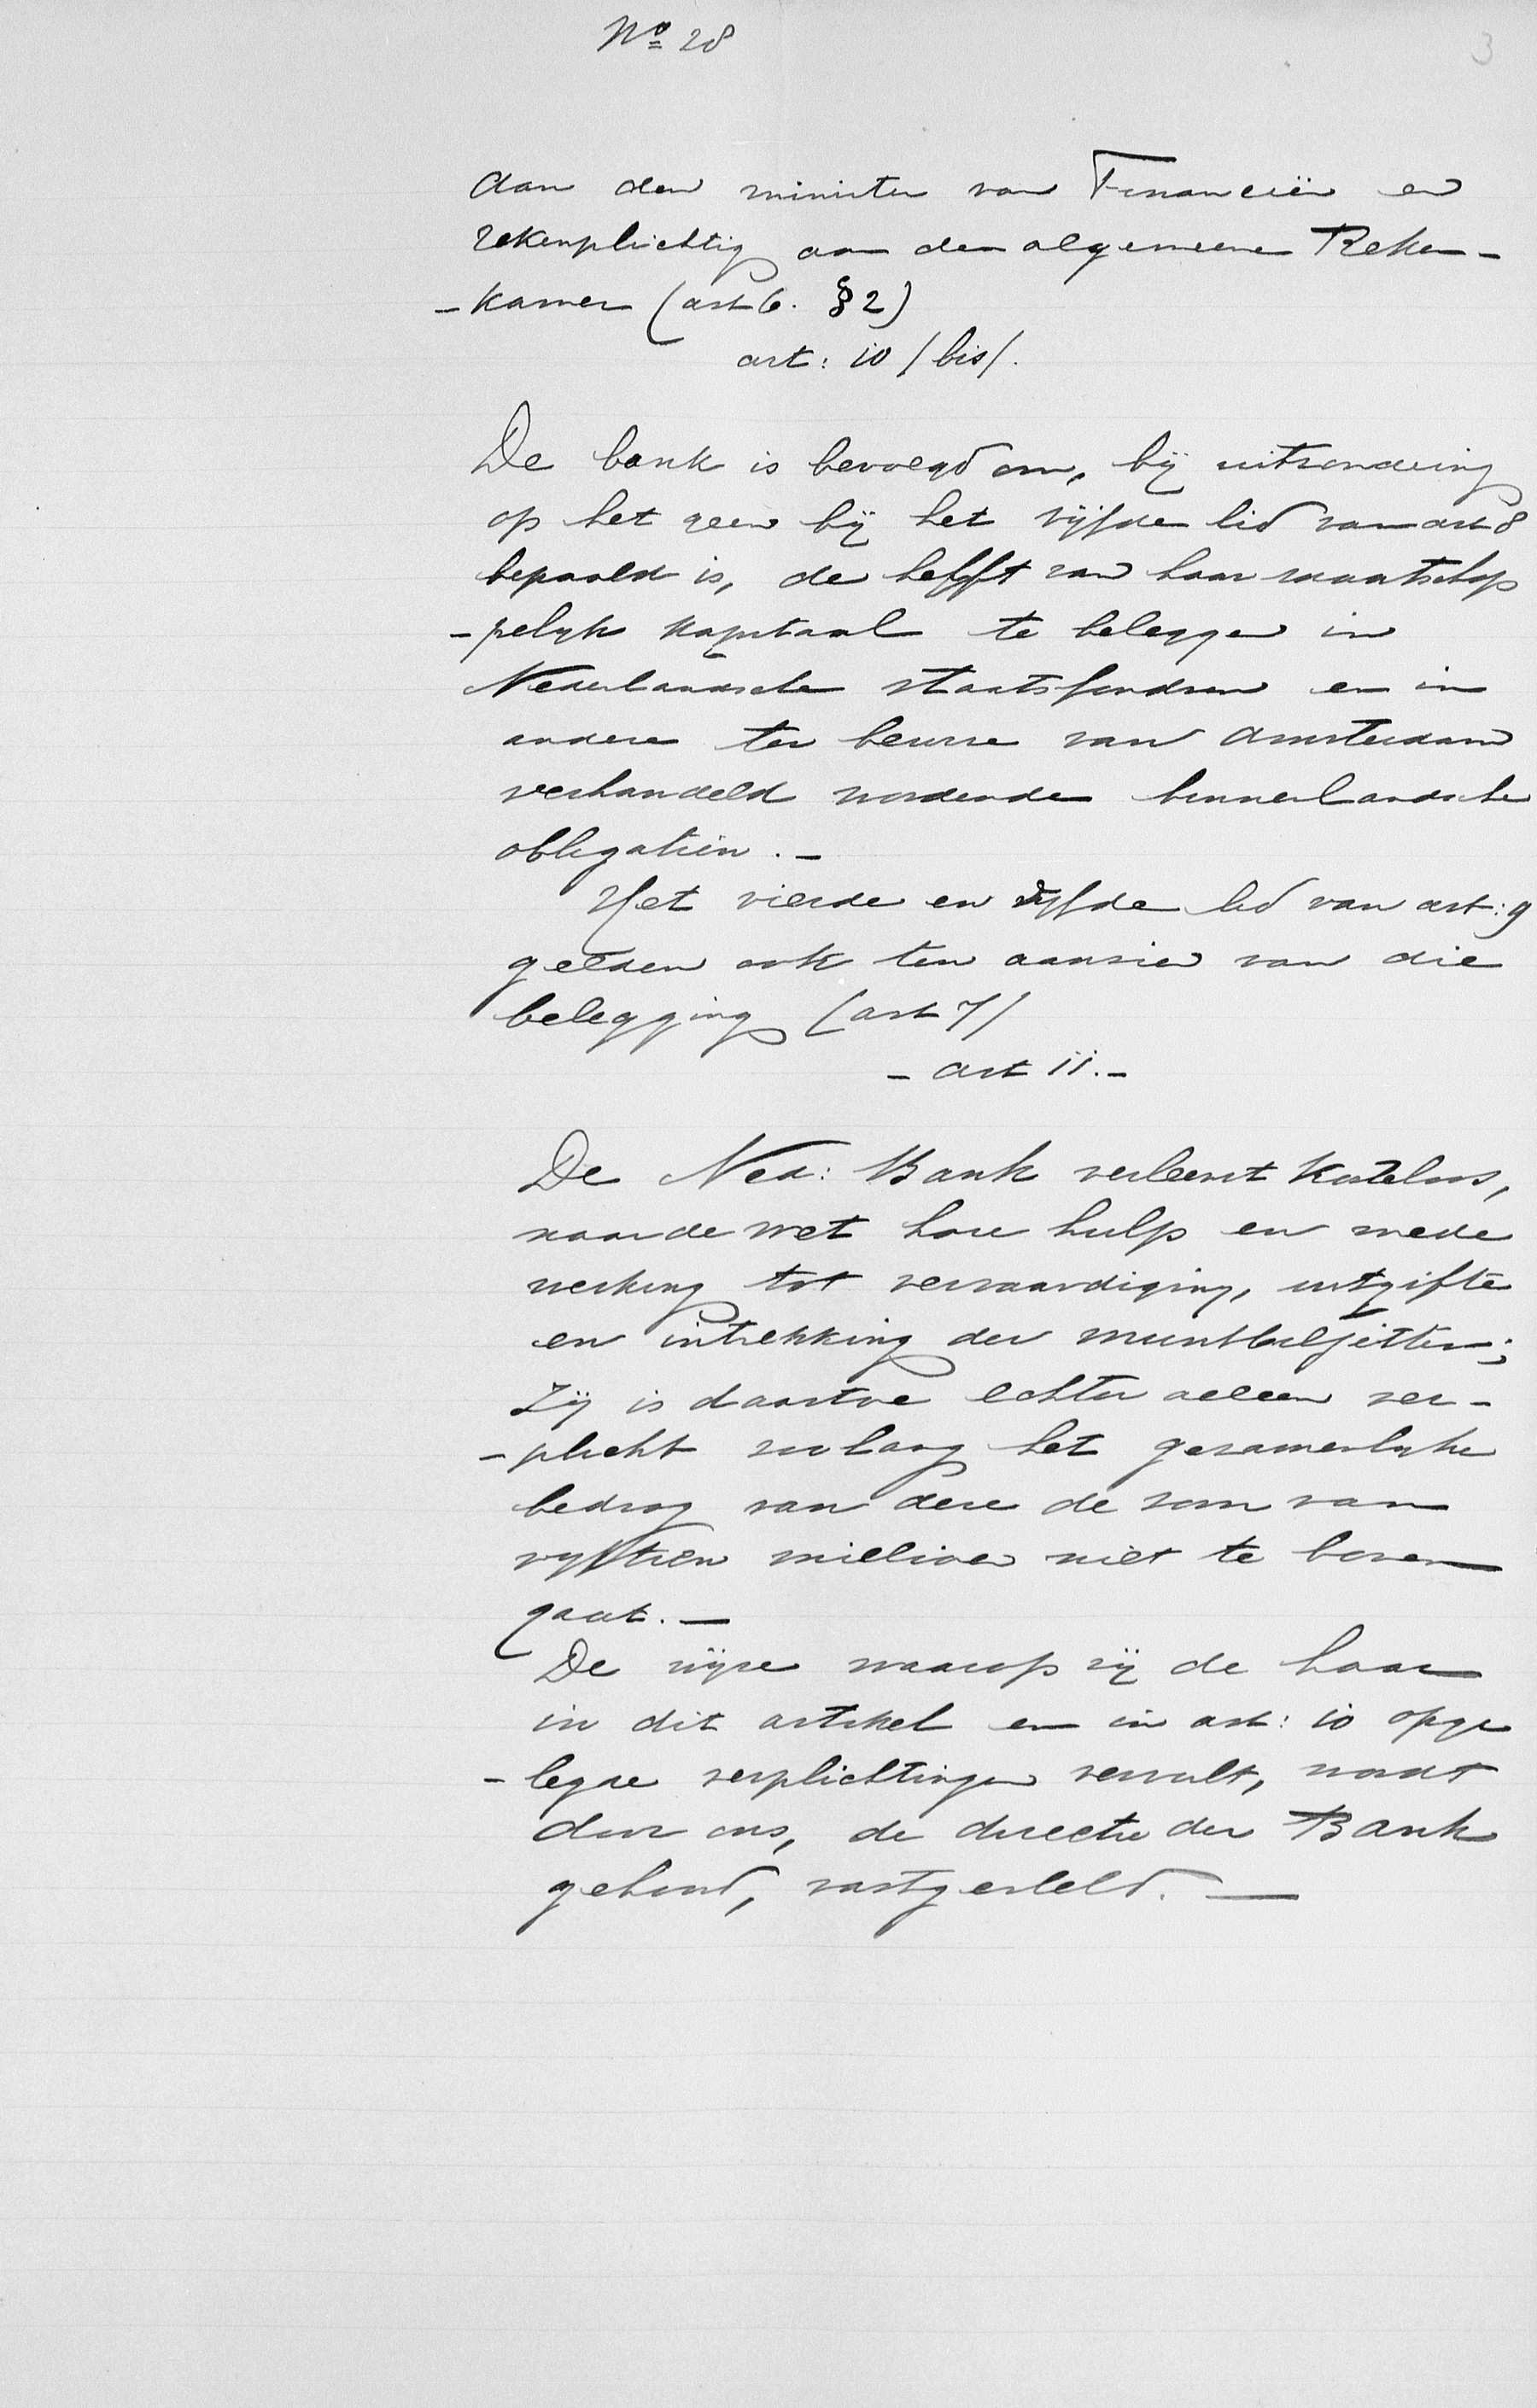 No 28
3
aan den minister van Financiën en
rekenplichtig aan den algemeene Reken-
-kamer (art 6. § 2)
art: 10 /bis/.
De bank is bevoegd om, bij uitzondering
op het geen bij het vijfde lid van art 8
bepaald is, de helft van haar maatschap
-pelyk kapitaal te beleggen in
Nederlandsche staatsfondsen en in
andere ter beurze van Amsterdam
verhandeld wordende binnenlandsche
obligatien. -
Het vierde en vyfde lid van art: 9
gelden ook ten aanzien van die
belegging (art 7/
- art 11. -
De Ned: Bank verleent kosteloos,
naar de wet hare hulp en mede
werking tot vervaardiging, uitgifte
en intrekking der muntbiljetten;
Zij is daartoe echter alleen ver-
-plicht zoolang het gezamenlyke
bedrag van deze de som van
vyftien millioen niet te boven
gaat. -
De wijze waarop zij de haar
in dit artikel en in art: 10 opge
-legde verplichtingen vervult, wordt
door ons, de directie der Bank
gehoord, vastgesteld. -